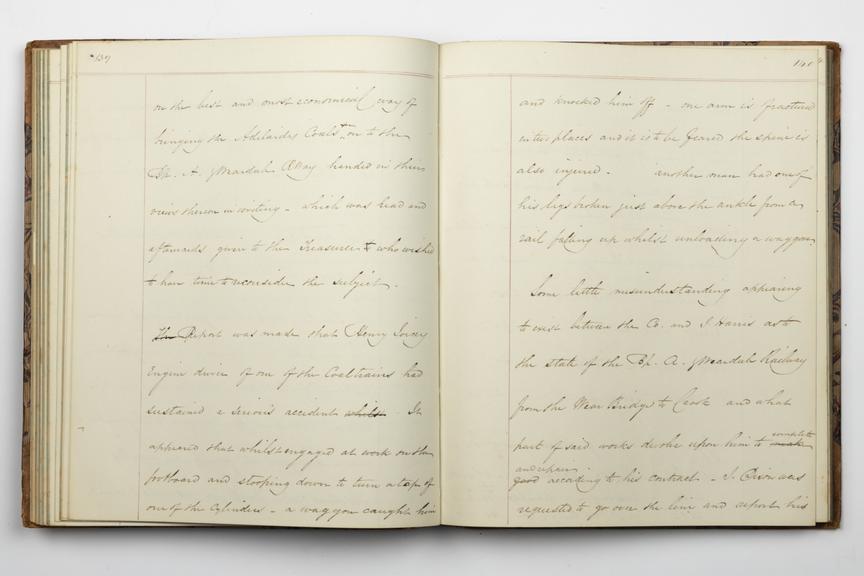 139
on the best and most economical way of
bringing the Adelaides Coals on to the
Bp. A. & Weardale Rlway handed in their
views thereon in writing - which was read and
afterwards given to the Treasurer who wished
to have time to reconsider the subject.
The Report was made that Henry
Engine driver of one of the Coal trains had
sustained a serious accident whilst. It
appeared that whilst engaged at work on the
footboard and stooping down to turn a tap of
one of the Cylinders - a waggon caught him
140
and knocked him off - one arm is fractured
in two places and it is to be feared the spine is
also injured. another man had one of
his legs broken just above the ankle from a
rail falling up whilst unloading a waggon
Some little misunderstanding appearing
to exist between the Co. and J Harris as to
the state of the Bp. A. & Weardale Railway
from the Wear Bridge to Crook and what
part of said works devolve upon him to make complete
good and repair according to his contract - J. Dixon was
requested to go over the line and report his